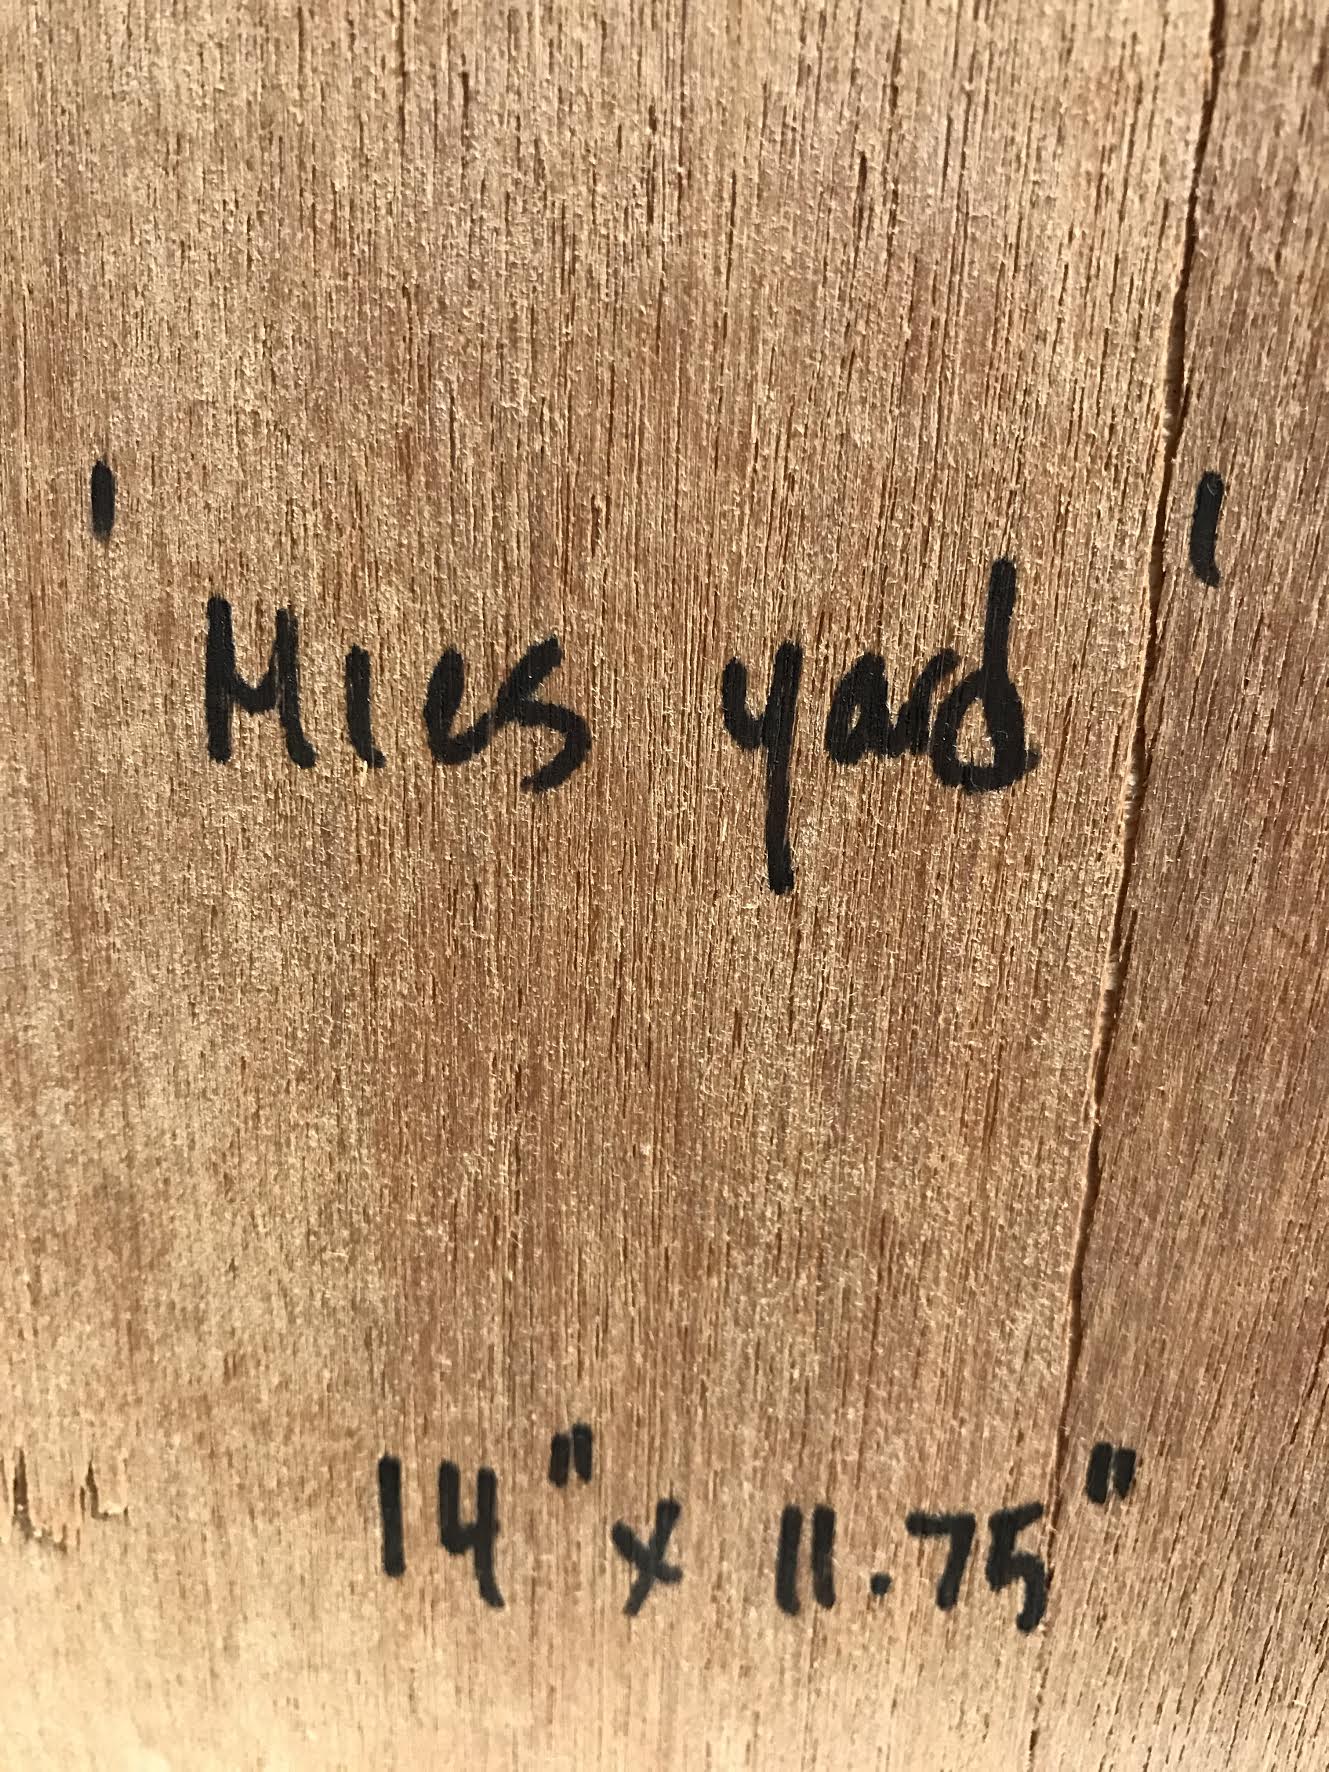 'Mies yard'
14" x 11.75"